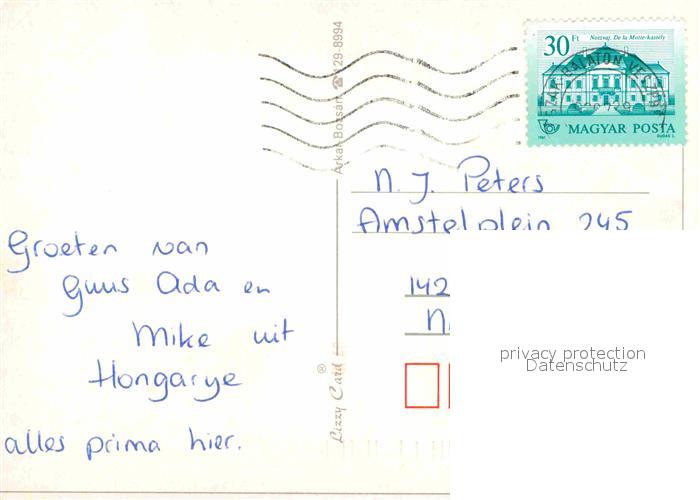 Noszvaj. De la Motte-kastély
30 Ft
MAGYAR POSTA
N. J. Peters
Amstelplein 245
142
N
Groeten van
Guus Ada en
Mike uit
Hongarye
alles prima hier.
Lizzy Card ®
129-8994
privacy protection
Datenschutz